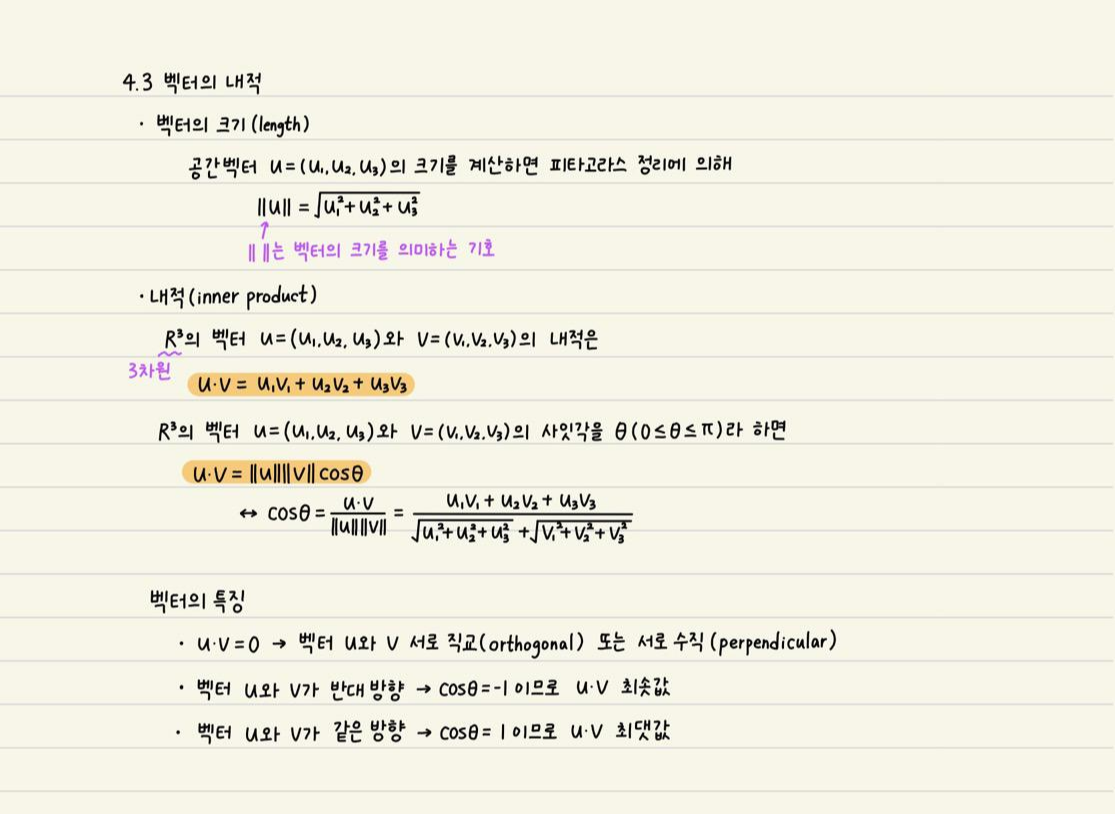 4.3 벡터의 내적
· 벡터의 크기(length)
공간벡터 u=(u₁, u₂, u₃)의 크기를 계산하면 피타고라스 정리에 의해
‖u‖ = √(u₁²+u₂²+u₃²)
↑
‖ ‖는 벡터의 크기를 의미하는 기호
· 내적(inner product)
R³의 벡터 u=(u₁, u₂, u₃)와 v=(v₁, v₂, v₃)의 내적은
3차원
u·v = u₁v₁ + u₂v₂ + u₃v₃
R³의 벡터 u=(u₁, u₂, u₃)와 v=(v₁, v₂, v₃)의 사잇각을 θ(0≤θ≤π)라 하면
u·v = ‖u‖‖v‖cosθ
↔ cosθ = u·v / ‖u‖‖v‖ = u₁v₁ + u₂v₂ + u₃v₃ / √(u₁²+u₂²+u₃²) + √(v₁²+v₂²+v₃²)
벡터의 특징
· u·v=0 → 벡터 u와 v 서로 직교(orthogonal) 또는 서로 수직(perpendicular)
· 벡터 u와 v가 반대 방향 → cosθ=-1 이므로 u·v 최솟값
· 벡터 u와 v가 같은 방향 → cosθ= 1 이므로 u·v 최댓값